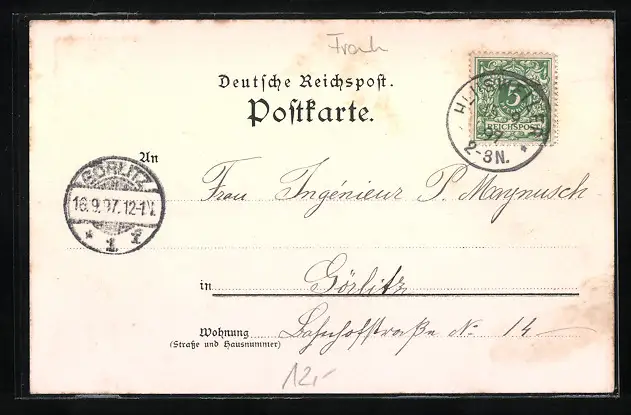 Deutsche Reichspost.
Postkarte.
5
REICHSPOST
2-3N.
An
GÖRLITZ
16.9.97.12-1V.
* 1 f
Frau Ingénieur P. Maynusch
in Görlitz
Wohnung Bahnhofstraße No 14
(Straße und Hausnummer)
12,-